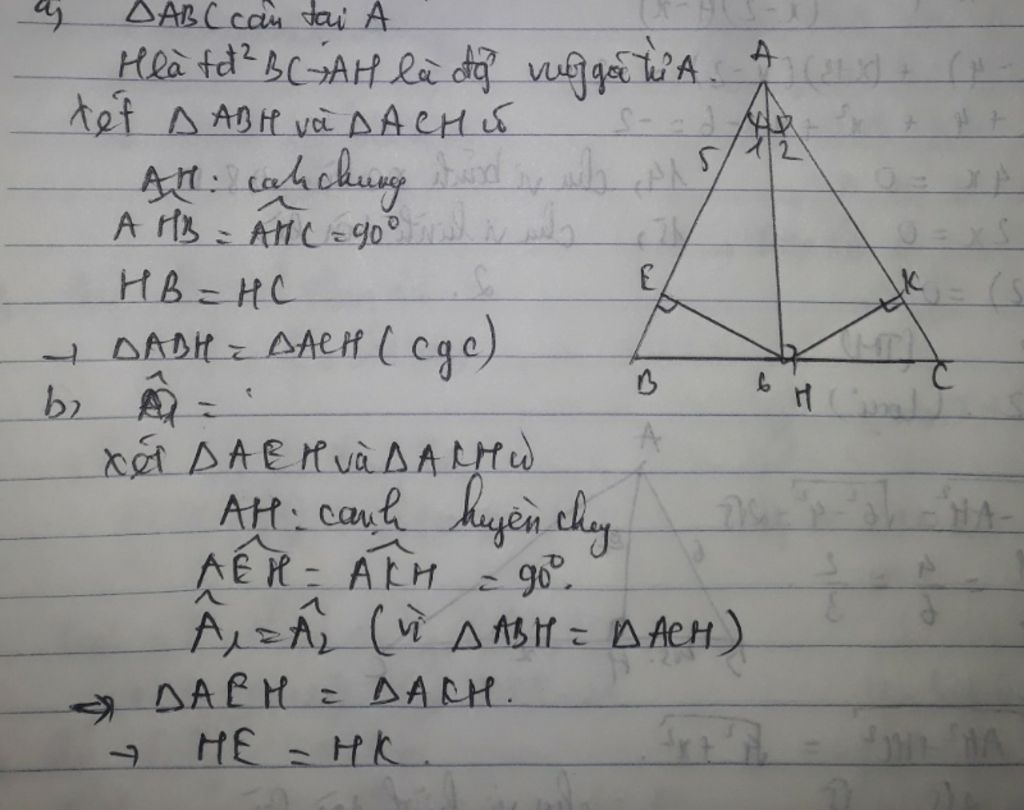 a, ΔABC cân tại A
H là tđ² BC → AH là đg vuôg góc từ A.
xét ΔABH và ΔACH có
AH: cạnh chung
AHB = AHC = 90°
HB = HC
→ ΔABH = ΔACH (cgc)
b,
xét ΔAEH và ΔAKH có
AH: cạnh huyền chung
AEH = AKH = 90°.
Â1 = Â2 (vì ΔABH = ΔACH)
⇒ ΔAEH = ΔAKH.
→ HE = HK.
A
1 2
5
E
K
B
6
H
C